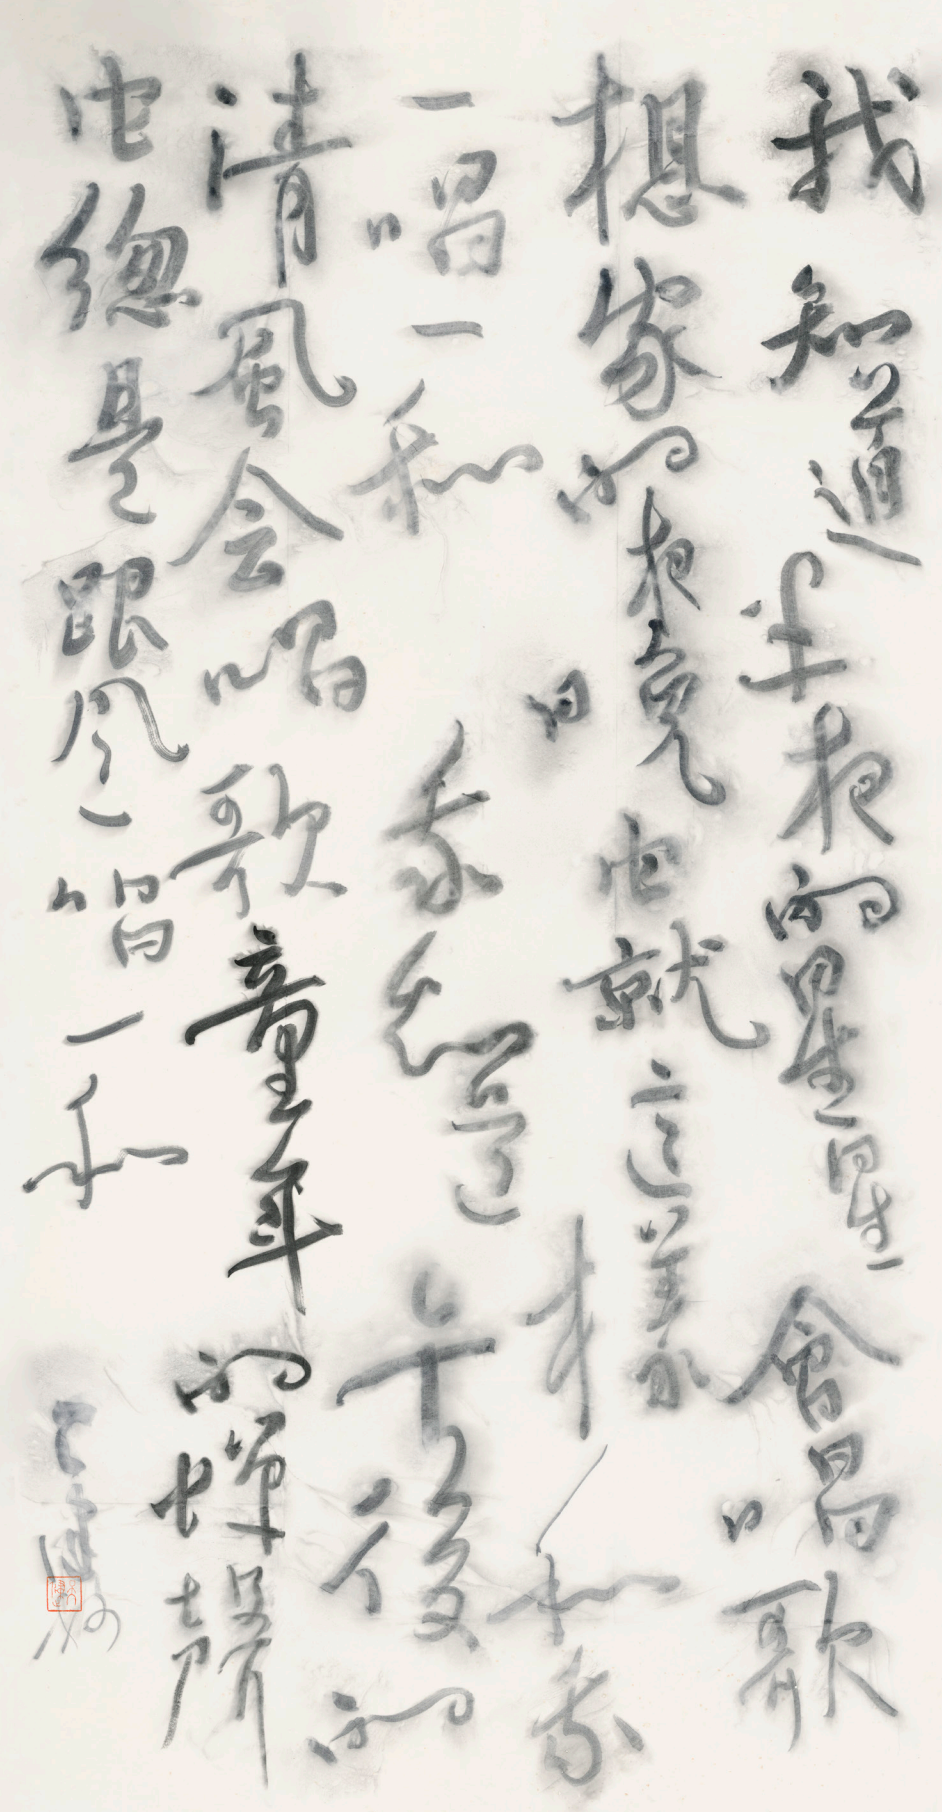 我知道半夜的星星會唱歌
想家的夜晚它就這樣和我
一唱一和我知道午後的
清風会唱歌童年的蟬聲
它總是跟风一唱一和